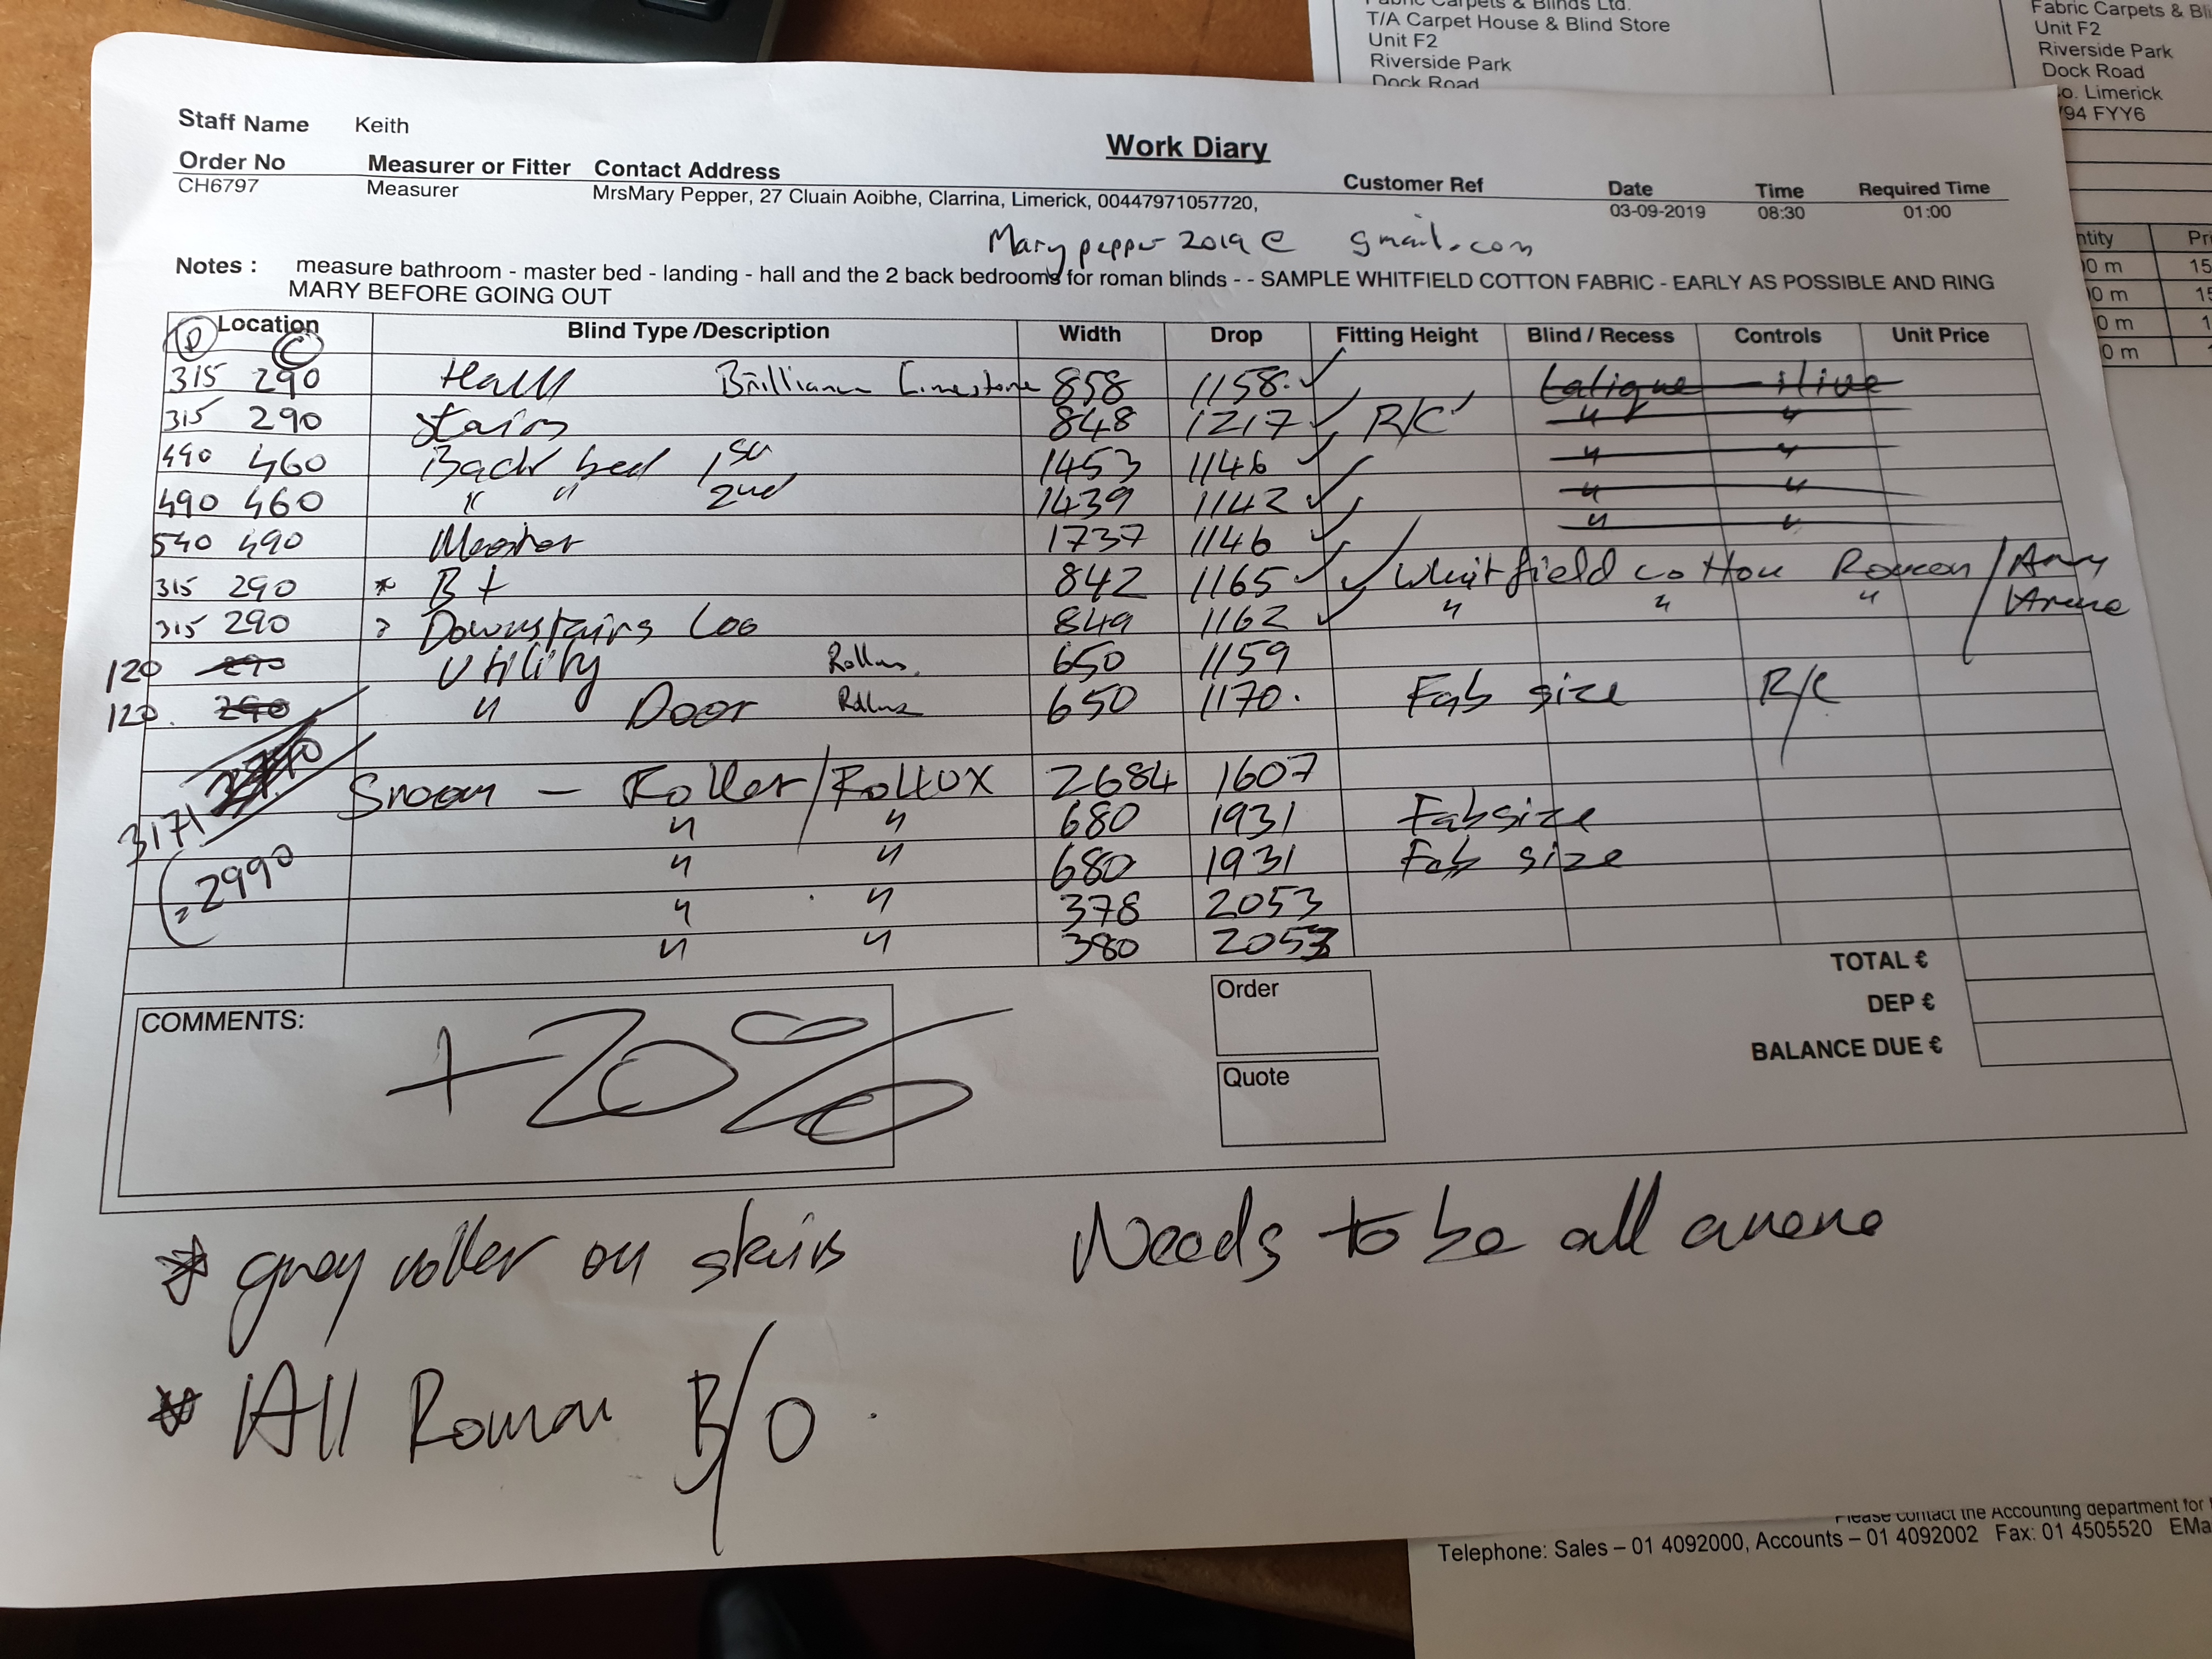 Fabric Carpets & Blinds Ltd.
T/A Carpet House & Blind Store
Unit F2
Riverside Park
Dock Road
Fabric Carpets & Bli
Unit F2
Riverside Park
Dock Road
o. Limerick
94 FYY6
ntity Pri
0 m 15
0 m 15
0 m 1
0 m 1
Staff Name Keith
Work Diary
Order No Measurer or Fitter Contact Address Customer Ref Date Time Required Time
CH6797 Measurer MrsMary Pepper, 27 Cluain Aoibhe, Clarrina, Limerick, 00447971057720, 03-09-2019 08:30 01:00
Marypepper2019@ gmail.com
Notes : measure bathroom - master bed - landing - hall and the 2 back bedrooms for roman blinds - - SAMPLE WHITFIELD COTTON FABRIC - EARLY AS POSSIBLE AND RING
MARY BEFORE GOING OUT
Location Blind Type /Description Width Drop Fitting Height Blind / Recess Controls Unit Price
C
315 290 Hall Brilliance Limestone 858 1158
315 290 Stairs 848 1217 R/C
490 460 Back bed 1st 1453 1146
490 460 " " 2nd 1439 1142
540 490 Master 1737 1146
315 290 * B+ 842 1165 Whitfield cotton Roman / Any
315 290 Downstairs Loo 849 1162 " " " Arena
120 290 Utility 650 1159
120. 290 " Door 650 1170. Fab size R/C
3171 Sroom - Roller/Rollux 2684 1607
" " 680 1931 Fabsize
2990 " " 680 1931 Fab size
" " 378 2053
" " 380 2053
TOTAL €
DEP €
BALANCE DUE €
Order
Quote
COMMENTS: +20%
* grey roller on stairs Needs to be all arena
* All Roman B/O.
Please contact the Accounting department for
Telephone: Sales – 01 4092000, Accounts – 01 4092002 Fax: 01 4505520 EMa